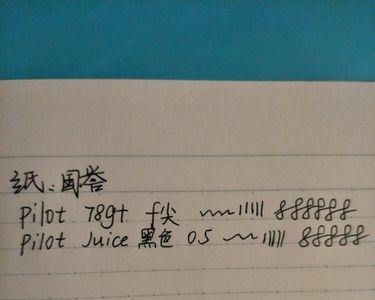 纸:国誉
pilot 78gt f尖 8888888
pilot Juice 黑色 0.5 88888